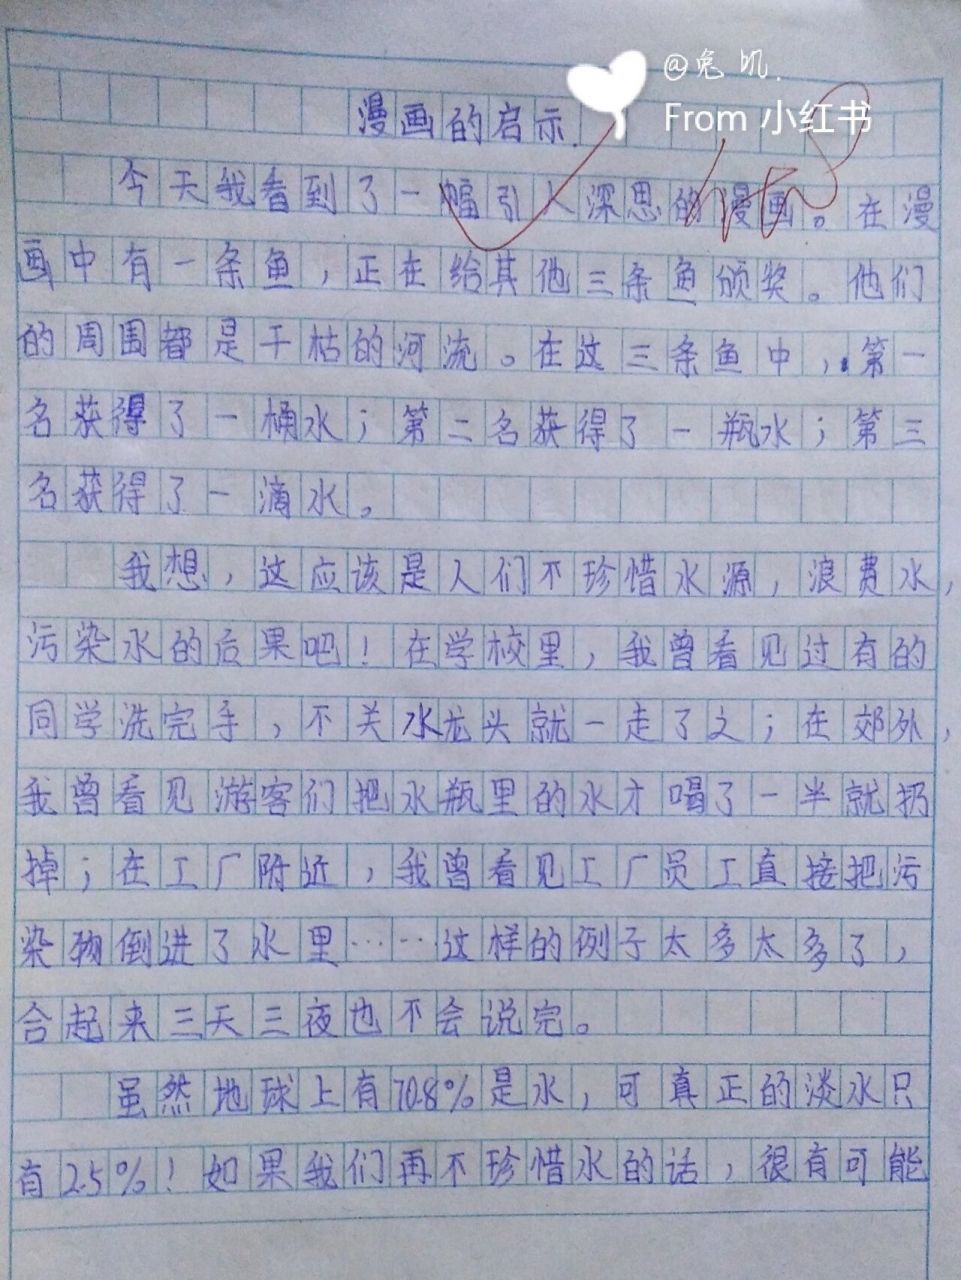 @兔叽.
From 小红书
漫画的启示.
今天我看到了一幅引人深思的漫画。在漫
画中有一条鱼，正在给其他三条鱼颁奖。他们
的周围都是干枯的河流。在这三条鱼中，第一
名获得了一桶水；第二名获得了一瓶水；第三
名获得了一滴水。
我想，这应该是人们不珍惜水源，浪费水，
污染水的后果吧！在学校里，我曾看见过有的
同学洗完手，不关水龙头就一走了之；在郊外，
我曾看见游客们把水瓶里的水才喝了一半就扔
掉；在工厂附近，我曾看见工厂员工直接把污
染物倒进了水里……这样的例子太多太多了，
合起来三天三夜也不会说完。
虽然地球上有70.8%是水，可真正的淡水只
有2.5%！如果我们再不珍惜水的话，很有可能